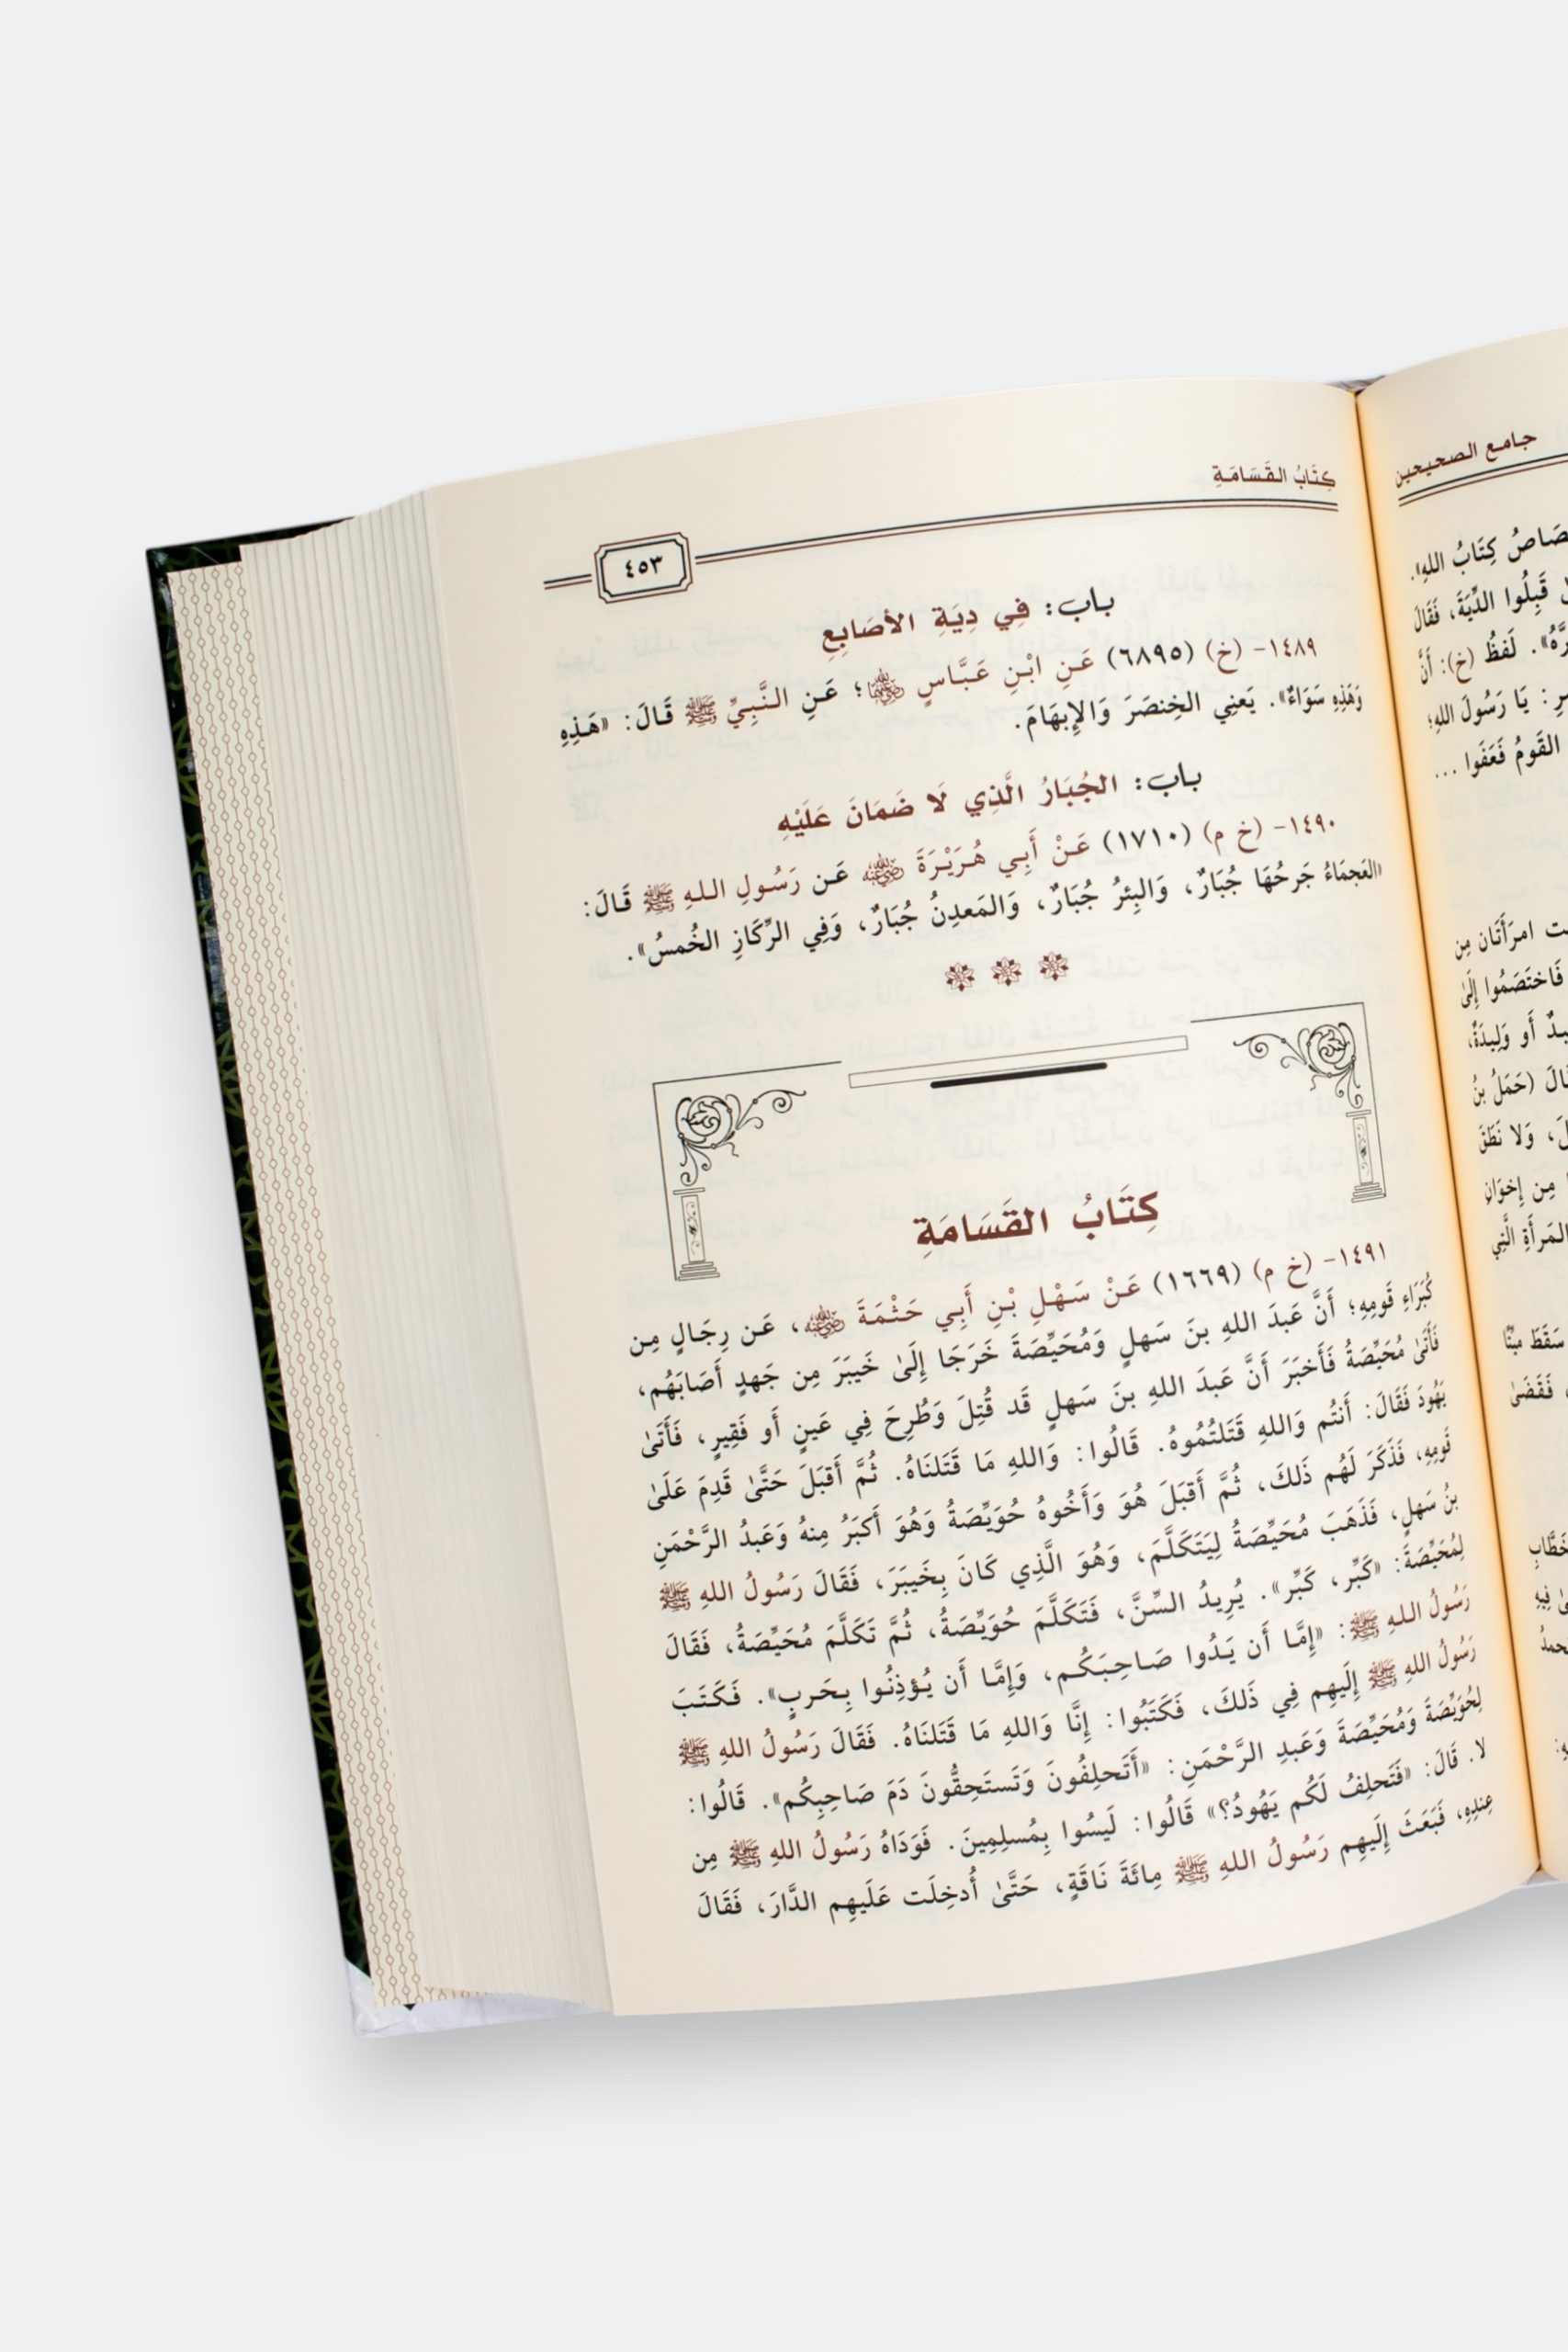 جامع الصحيحين
قَبِلُوا الدِّيَةَ، فَقَالَ
لَفظُ (خ): أَنَّ
يَا رَسُولَ اللهِ؛
القَومُ فَعَفَوا ...
امرَأَتَان مِن
فَاختَصَمُوا إِلَىٰ
أَو وَلِيدَةٌ،
(حَمَلُ بنُ
وَلا نَطَقَ
مِن إِخوَانِ
المَرأَةِ الَّتِي
سَقَطَ مَيِّتًا
فَقَضَىٰ
كِتَابُ القَسَامَةِ
٤٥٣
باب: فِي دِيَةِ الأصَابِعِ
١٤٨٩- (خ) (٦٨٩٥) عَنِ ابْنِ عَبَّاسٍ رضي الله عنهما؛ عَنِ النَّبِيِّ ﷺ قَالَ: «هَذِهِ
وَهَذِهِ سَوَاءٌ». يَعنِي الخِنصَرَ وَالإِبهَامَ.
باب: الجُبَارُ الَّذِي لَا ضَمَانَ عَلَيْهِ
١٤٩٠- (خ م) (١٧١٠) عَنْ أَبِي هُرَيْرَةَ رضي الله عنه عَن رَسُولِ اللهِ ﷺ قَالَ:
«العَجمَاءُ جَرحُهَا جُبَارٌ، وَالبِئرُ جُبَارٌ، وَالمَعدِنُ جُبَارٌ، وَفِي الرِّكَازِ الخُمسُ».
كِتَابُ القَسَامَةِ
١٤٩١- (خ م) (١٦٦٩) عَنْ سَهْلِ بْنِ أَبِي حَثْمَةَ رضي الله عنه، عَن رِجَالٍ مِن
كُبَرَاءِ قَومِهِ؛ أَنَّ عَبدَ اللهِ بنَ سَهلٍ وَمُحَيِّصَةَ خَرَجَا إِلَىٰ خَيبَرَ مِن جَهدٍ أَصَابَهُم،
فَأَتَىٰ مُحَيِّصَةُ فَأَخبَرَ أَنَّ عَبدَ اللهِ بنَ سَهلٍ قَد قُتِلَ وَطُرِحَ فِي عَينٍ أَو فَقِيرٍ، فَأَتَىٰ
يَهُودَ فَقَالَ: أَنتُم وَاللهِ قَتَلتُمُوهُ. قَالُوا: وَاللهِ مَا قَتَلنَاهُ. ثُمَّ أَقبَلَ حَتَّىٰ قَدِمَ عَلَىٰ
قَومِهِ، فَذَكَرَ لَهُم ذَلكَ، ثُمَّ أَقبَلَ هُوَ وَأَخُوهُ حُوَيِّصَةُ وَهُوَ أَكبَرُ مِنهُ وَعَبدُ الرَّحْمَنِ
بنُ سَهلٍ، فَذَهَبَ مُحَيِّصَةُ لِيَتَكَلَّمَ، وَهُوَ الَّذِي كَانَ بِخَيبَرَ، فَقَالَ رَسُولُ اللهِ ﷺ
لِمُحَيِّصَةَ: «كَبِّر، كَبِّر». يُرِيدُ السِّنَّ، فَتَكَلَّمَ حُوَيِّصَةُ، ثُمَّ تَكَلَّمَ مُحَيِّصَةُ، فَقَالَ
رَسُولُ اللهِ ﷺ: «إِمَّا أَن يَدُوا صَاحِبَكُم، وَإِمَّا أَن يُؤذِنُوا بِحَربٍ». فَكَتَبَ
رَسُولُ اللهِ ﷺ إِلَيهِم فِي ذَلكَ، فَكَتَبُوا: إِنَّا وَاللهِ مَا قَتَلنَاهُ. فَقَالَ رَسُولُ اللهِ ﷺ
لِحُوَيِّصَةَ وَمُحَيِّصَةَ وَعَبدِ الرَّحْمَنِ: «أَتَحلِفُونَ وَتَستَحِقُّونَ دَمَ صَاحِبِكُم». قَالُوا:
لا. قَالَ: «فَتَحلِفُ لَكُم يَهُودُ؟» قَالُوا: لَيسُوا بِمُسلِمِينَ. فَوَدَاهُ رَسُولُ اللهِ ﷺ مِن
عِندِهِ، فَبَعَثَ إِلَيهِم رَسُولُ اللهِ ﷺ مِائَةَ نَاقَةٍ، حَتَّىٰ أُدخِلَت عَلَيهِم الدَّارَ، فَقَالَ